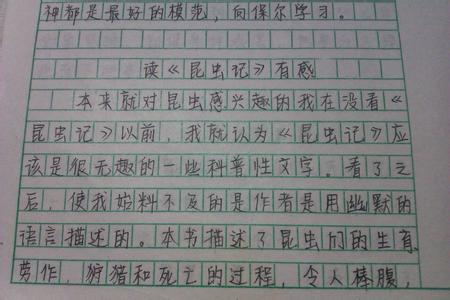 神都是最好的模范，向保尔学习。
读《昆虫记》有感
本来就对昆虫感兴趣的我在没看《
昆虫记》以前，我就认为《昆虫记》应
该是很无趣的一些科普性文字。看了之
后，使我始料不及的是作者是用幽默的
语言描述的。本书描述了昆虫们的生育、
劳作，狩猎和死亡的过程，令人捧腹，